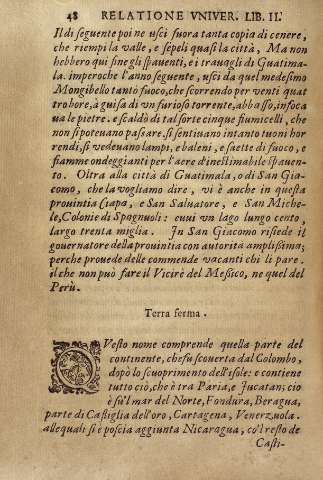 48 RELATIONE VNIVER. LIB. II.
Il dì seguente poi ne uscì fuora tanta copia di cenere,
che riempì la valle, e sepelì quasi la città, Ma non
hebbero quì fine gli spauenti, e i trauagli di Guatima-
la. imperoche l'anno seguente, uscì da quel medesimo
Mongibello tanto fuoco, che scorrendo per venti quat
tro hore, à guisa di vn furioso torrente, abbassò, infoca
ua le pietre. e scaldò di tal sorte cinque fiumicelli, che
non si poteuano passare. si sentiuano intanto tuoni hor
rendi, si vedeuano lampi, e baleni, e saette di fuoco, e
fiamme ondeggianti per l'aere d'inestimabile spauen-
to. Oltra alla città di Guatimala, o di San Gia-
como, che la vogliamo dire, vi è anche in questa
prouintia Ciapa, e San Saluatore, e San Miche-
le, Colonie di Spagnuoli: euui vn lago lungo cento,
largo trenta miglia. In San Giacomo risiede il
gouernatore della prouintia con autorità amplissima;
perche prouede delle commende vacanti chi li pare.
il che non può fare il Vicirè del Messico, ne quel del
Perù.
Terra ferma.
QVesto nome comprende quella parte del
continente, che fu scouerta dal Colombo,
dopò lo scuoprimento dell'isole: e contiene
tutto ciò, che è tra Paria, e Jucatan; cio
è sù'l mar del Norte, Fondura, Beragua,
parte di Castiglia dell'oro, Cartagena, Venerzuola.
alle quali si è poscia aggiunta Nicaragua, co'l resto de
Casti-